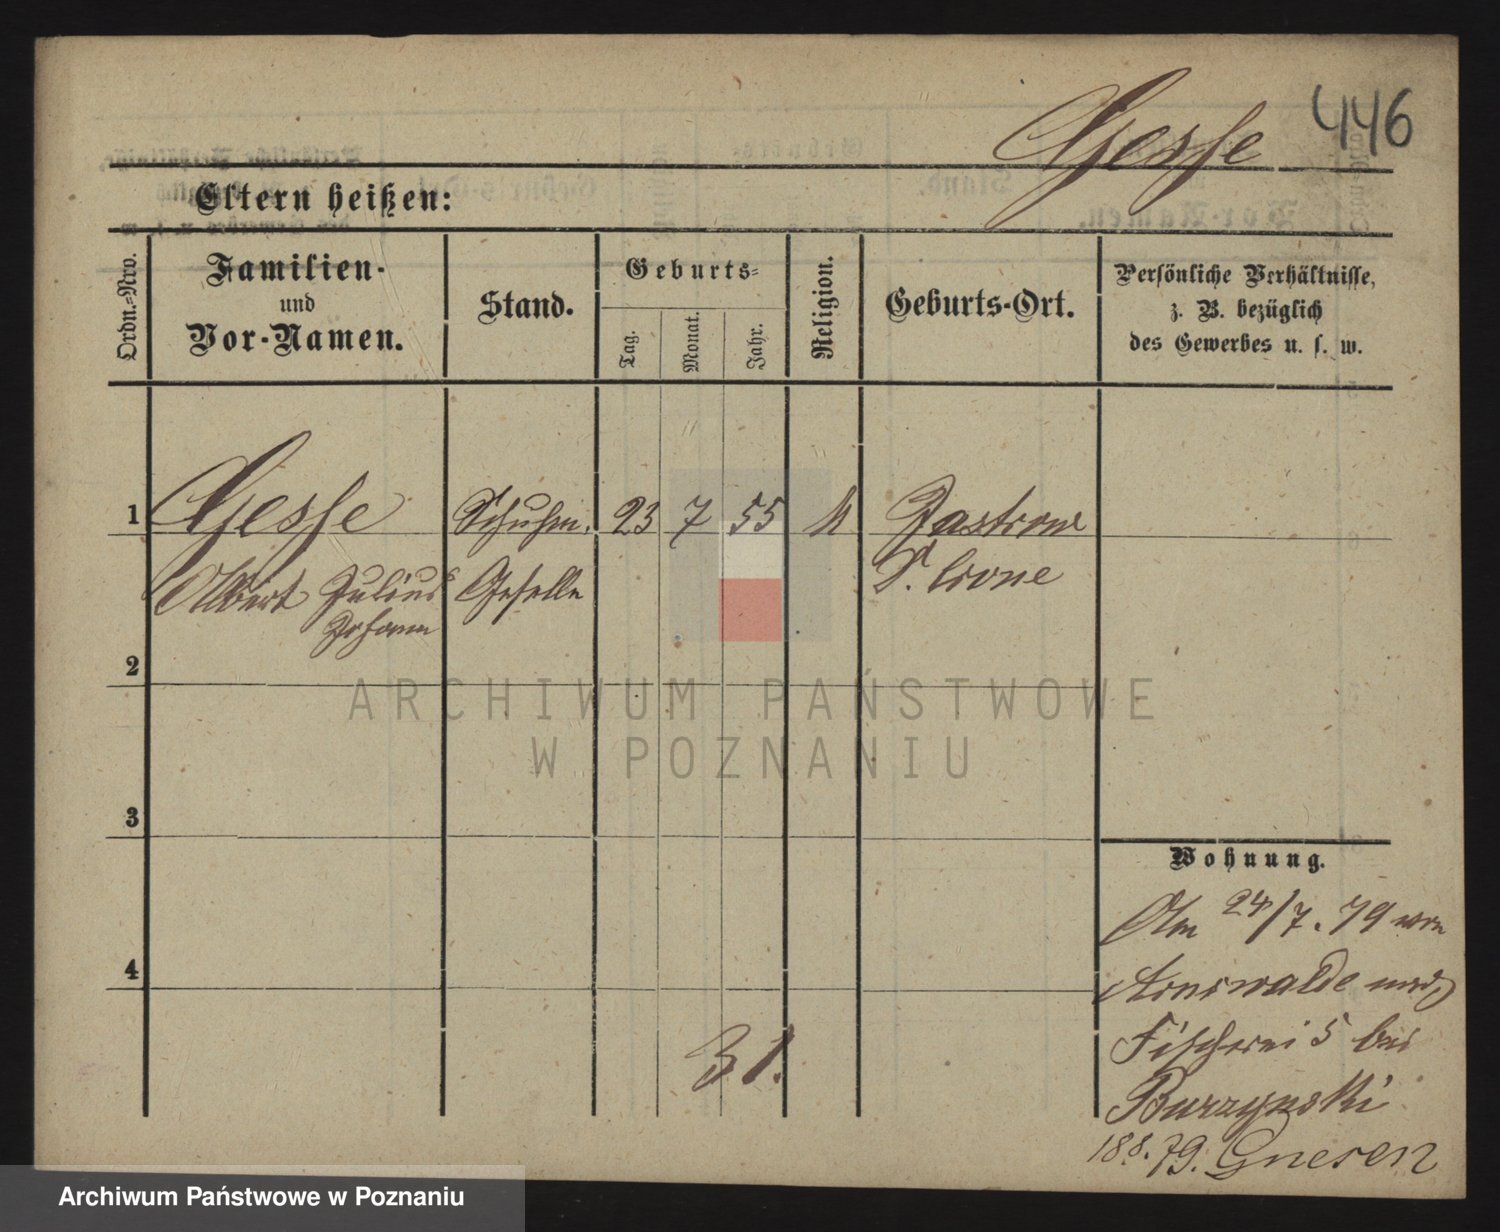 446
Gesse
Eltern heißen:
Ordn.-Nro.
Familien-
und
Vor-Namen.
Stand.
Geburts-
Tag.
Monat.
Jahr.
Religion.
Geburts-Ort.
Persönliche Verhältnisse,
z. B. bezüglich
des Gewerbes u. s. w.
1 Gesse Schuhm. 23 7 55 k Jastrow
Albert Julius Geselle D. Crone
Johann
2
ARCHIWUM PAŃSTWOWE
W POZNANIU
3
Wohnung.
Am 24/7. 79 von
4
Arnswalde nach
31.
Fischerei 5 bei
Burzynski
18 8. 79. Gnesen
Archiwum Państwowe w Poznaniu